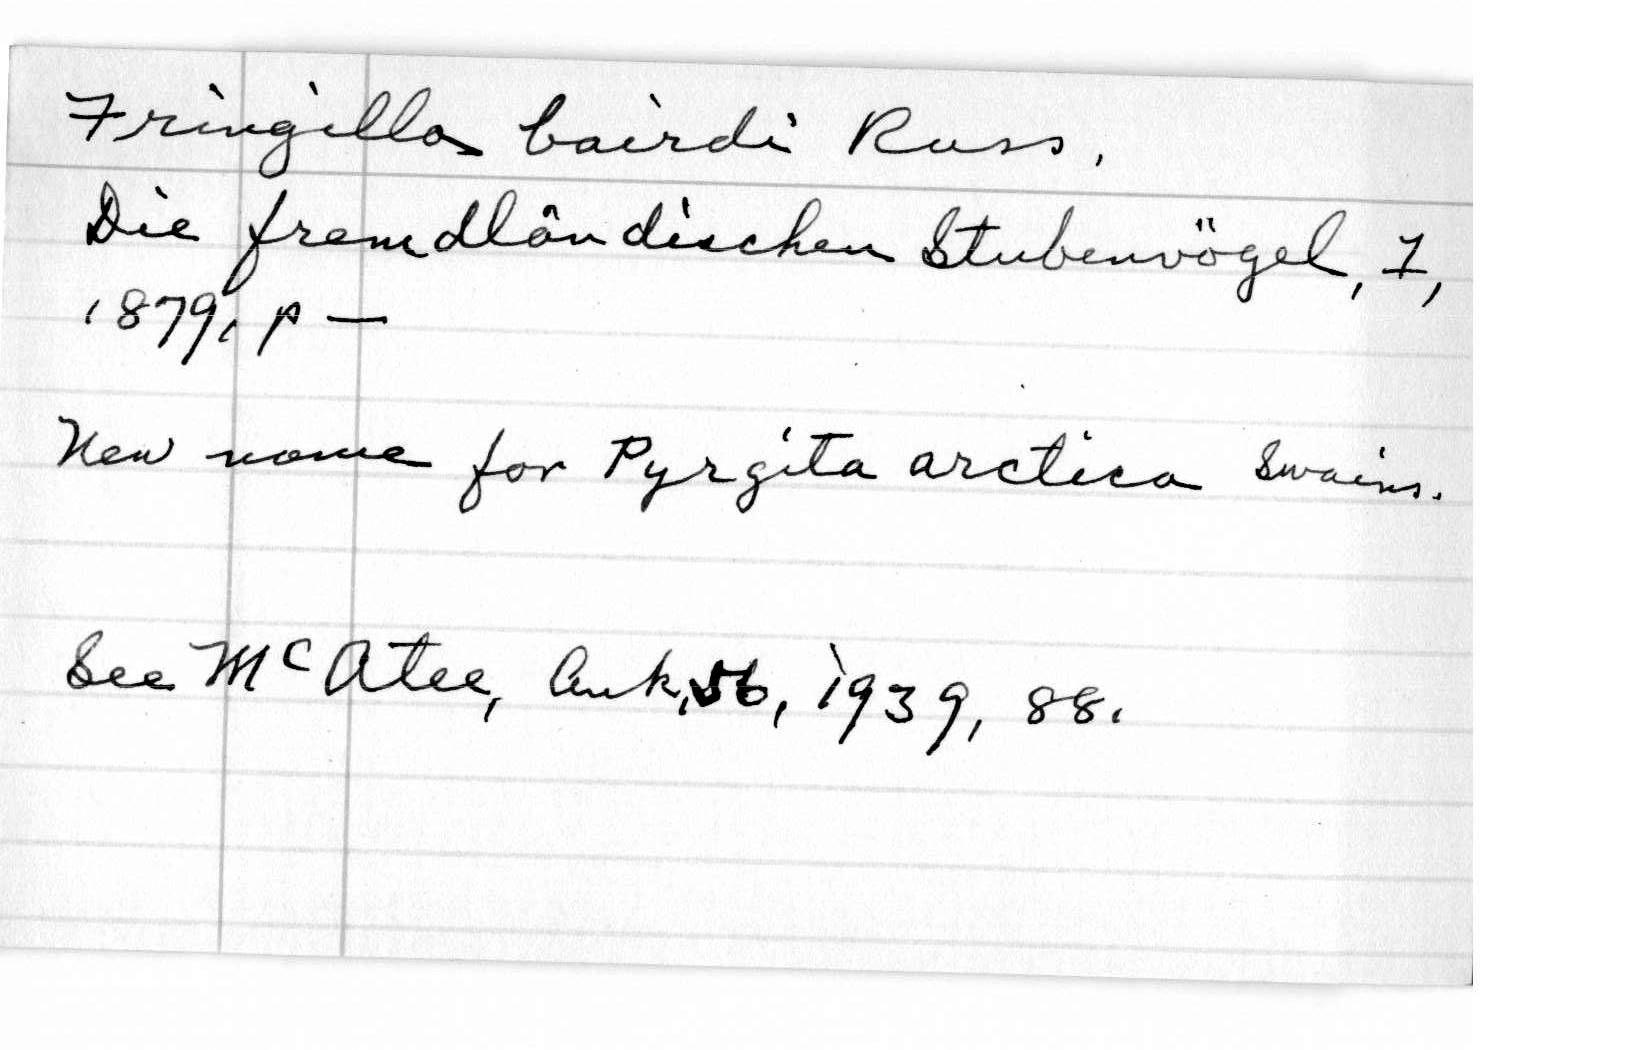 Fringilla bairdi Russ,
Die fremdländischen Stubenvögel, I,
1879, p —
New name for Pyrgita arctica Swains.
See McAtee, Auk, 56, 1939, 88.